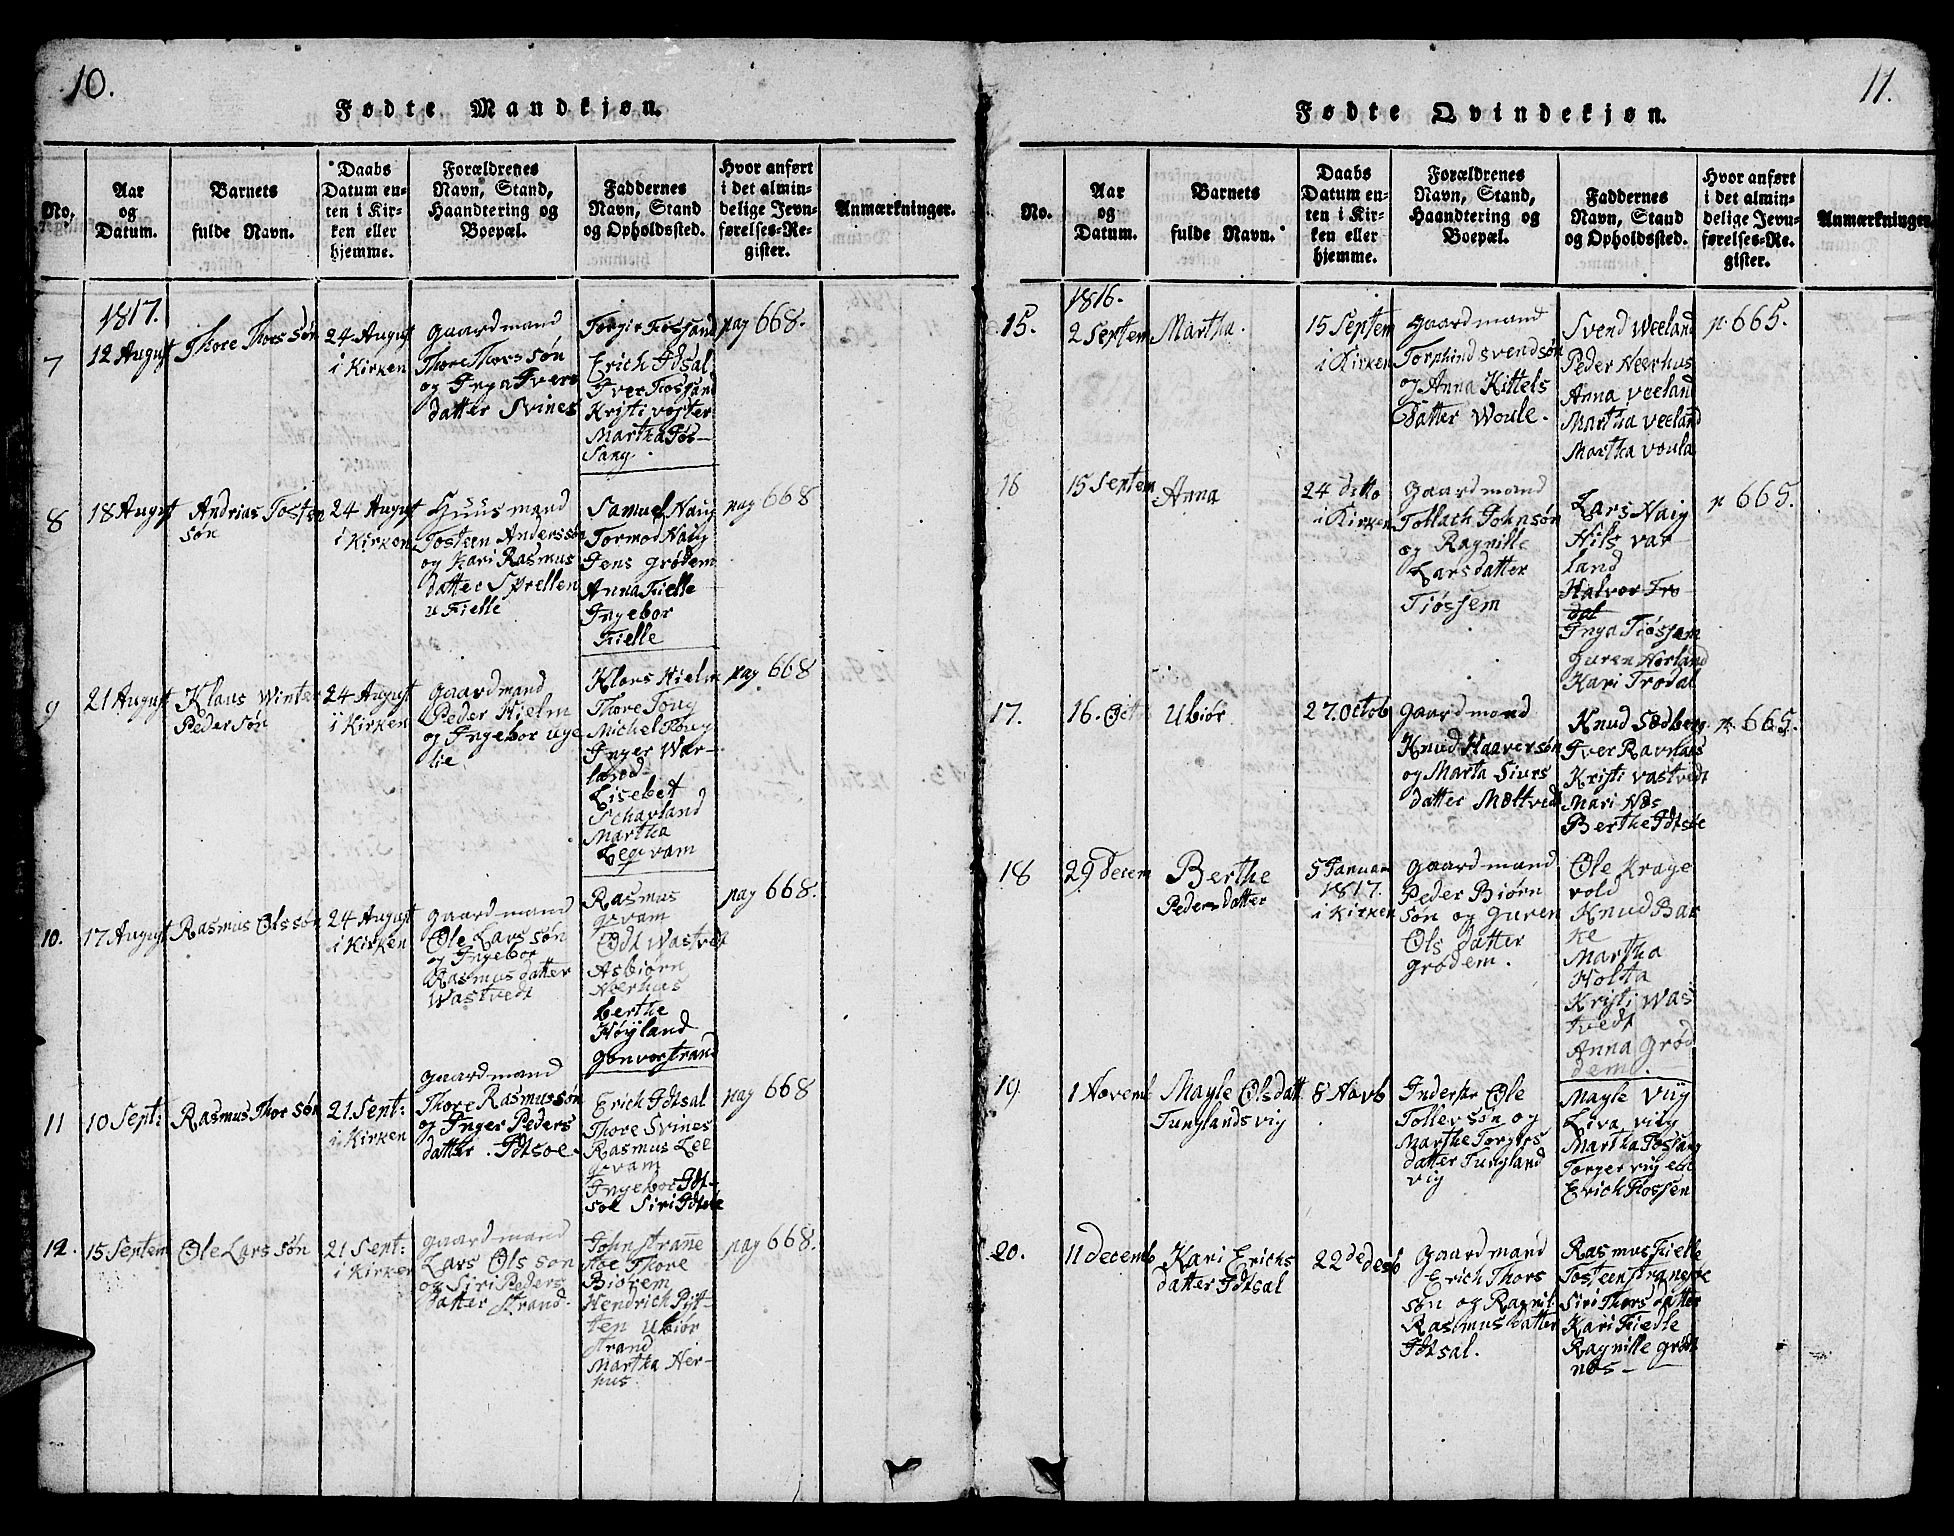 10.
Fødte Mandkjøn.
No.
Aar
og
Datum.
Barnets
fulde Navn.
Daabs
Datum en-
ten i Kir-
ken eller
hjemme.
Forældrenes
Navn, Stand,
Haandtering og
Boepæl.
Faddernes
Navn, Stand
og Opholdssted.
Hvor anført
i det almin-
delige Jevn-
førelses-Re-
gister.
Anmærkninger.
7
1817.
12 August
Thore Thors søn
24 August
i Kirken
gaardmand
Thore Thors søn
og Inga Ivers
datter Svines
Torgir Fossand
Erich Idsal
Iver Fossand
Kristi voster
Martha Fos-
Sang.
pag 668.
8
18 August
Andrias Tosten
søn
24 August
i Kirken
Huusmand
Tosteen Anderssøn
og Kari Rasmus
datter Sprellen
u Fielle
Samuel Haug
Tormod Haug
Jens grödem
Anna Fielle
Ingebor
Fielle
pag 668
9
21 August
Klaus Winter
Peder søn
24 August
i Kirken
gaardmand
Peder Hielm
og Ingebor uge
lie
Klars Hielm
Thore Toug
Michel Toug
Inger War-
land
Lisebet
Scharland
Martha
Leqvam
pag 668
10.
17 August
Rasmus Ols søn
24 August
i Kirken
gaardmand
Ole Lars søn
og Ingebor
Rasmus datter
Wastvedt
Rasmus
qvam
Odt Wastvedt
Asbiørn
Neerhus
berthe
Høyland
gonvor strand
pag 668.
11
10 Sept:
Rasmus Thor søn
21. Sept:
i Kirken
gaardmand
Thore Rasmussøn
og Inger Peders
datter. Idsoe.
Erich Idsal
Thore Svines
Rasmus Lee
qvam
Ingebor Id-
soe Siri Idsoe
pag 668
12.
15 Septem
Ole Lars søn
21 Sept:
i Kirken
gaardmand
Lars Ols søn
og Siri Peders
datter strand.
John stranne
Aoe Thore
Biørem
Hendrich Pyt-
ten Ubiør
strand
Martha Her-
hus
pag 668.
11.
Fødte Qvindekjøn.
No.
Aar
og
Datum.
Barnets
fulde Navn.
Daabs
Datum en-
ten i Kir-
ken eller
hjemme.
Forældrenes
Navn, Stand,
Haandtering og
Boepæl.
Faddernes
Navn, Stand
og Opholdssted.
Hvor anført
i det almin-
delige Jevn-
førelses-Re-
gister.
Anmærkninger
15.
1816.
2 Septem
Martha.
15 Septem
i Kirken
gaardmand
Torphind svendsøn
og Anna Kittels
Datter Woule.
Svend Weeland
Peder Neerhus
Anna veeland
Martha veeland
Martha voula
p. 665.
16
15 Septem
Anna
24 ditto
i Kirken
gaardmand
Tollach Johnsøn
og Ragnille
Larsdatter
Tiøssem
Lars Haig
Nils var
land
Halvor Tro
dal
Inga Tiøssem
guren Horland
Kari Trodal
p 665.
17.
16. Octo
Ubiør
27. Octob
gaardmand
Knud Haaversøn
og Marta Siurs
datter Moltvedt
Knud Sødberg
Iver Ravnaas
Kristi vastvedt
Mari Nøs
Berthe Idsøe
p. 665.
18
29 Decem
Berthe
Pedersdatter
5 Januar
1817.
i Kirken
gaardmand
Peder Biørn
søn og guren
Ols datter
grødem.
Ole Krage
vold
Knud Bar
ke
Martha
Holta
Kristi Was
tvedt
Anna grød
dem.
19.
1 Novemb
Mayle Olsdatt
Tunglandsvig
8 Novb
Inderstr Ole
Tollevsøn og
Marthe Torgers
datter Tungland
vig
Mayle viig
Liva vilg
Martha Fossang
Torger vig
Erich Fossen
20.
11 decemb
Kari Erichs
datter Idsal
22 de desb
gaardmand
Erich Thors
søn og Ragnil
Rasmusdatter
Idsal.
Rasmus Fielle
Tosteen strane
Siri Thors datter
Kari Fiedle
Ragnille grød
nøs